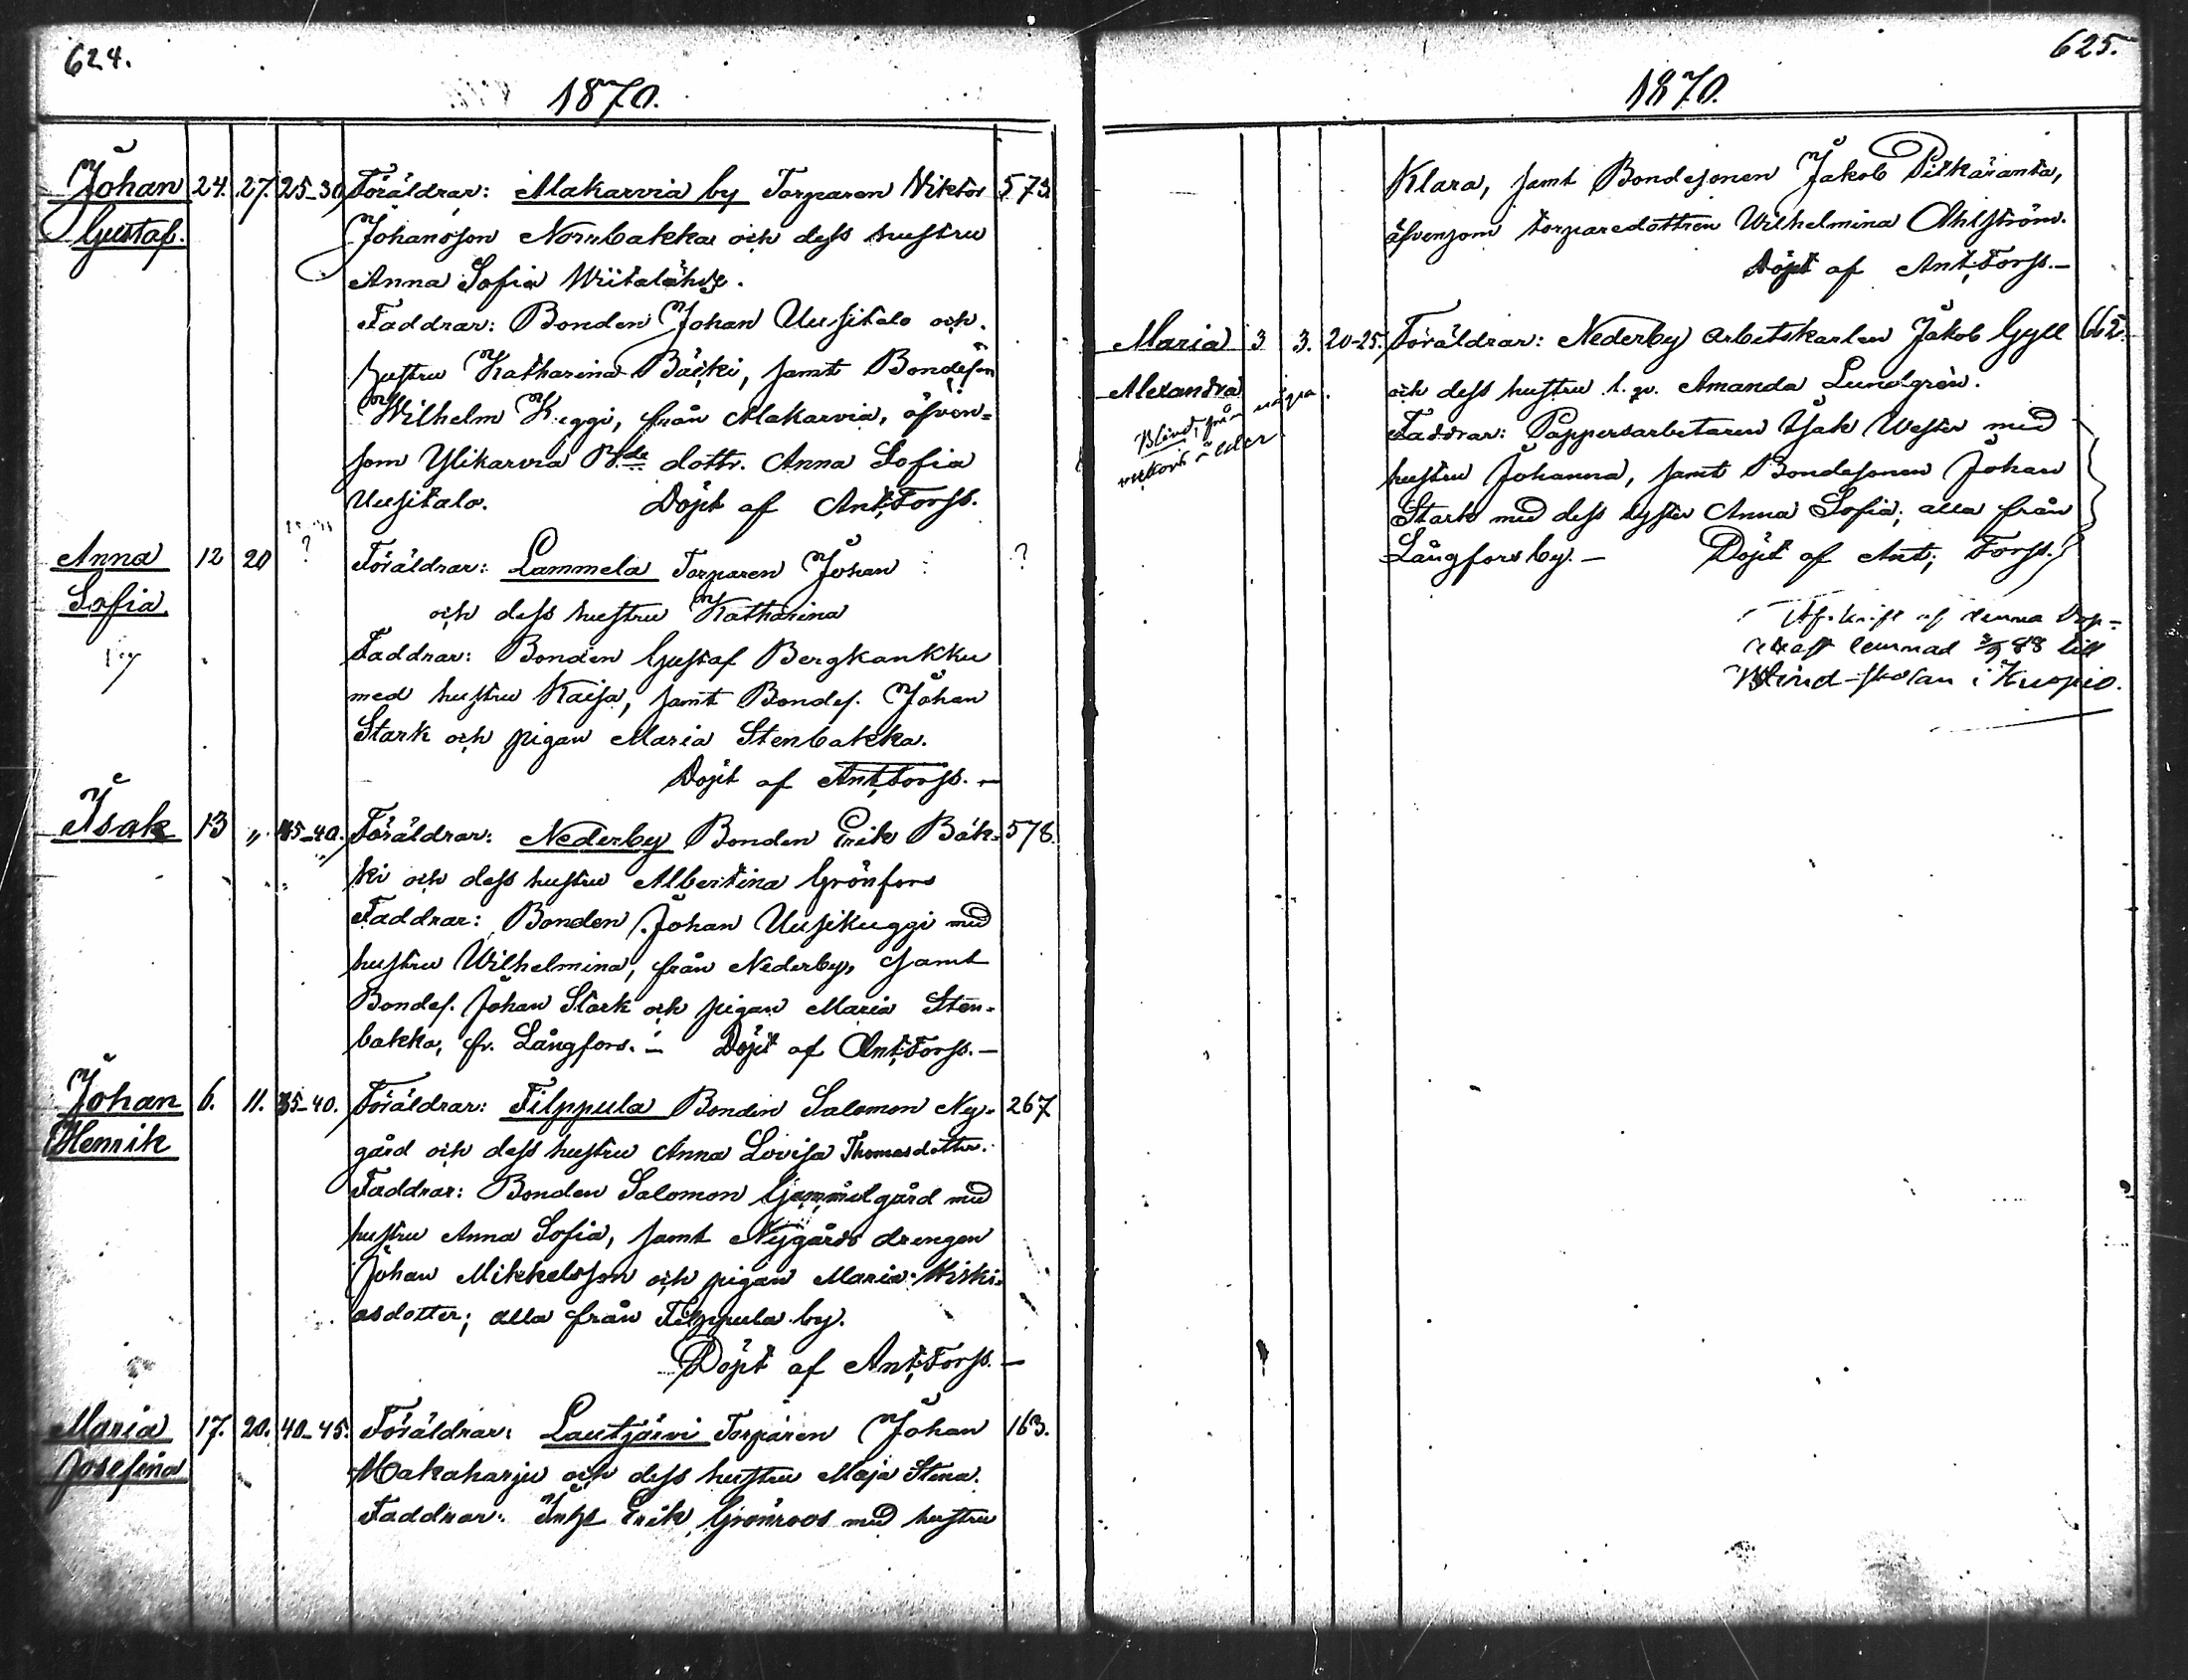 624.
1870.
Johan 24. 27. 25-30 Föräldrar: Makarvia by Torparen Viktor 573
Gustaf. Johansson Norrbakka och dess hustru
Anna Sofia Wiitalähde.
Faddrar: Bonden Johan Uusitalo och
hustru Katharina Bäcki, samt Bondeson
Wilhelm Keggi, från Makarvia, äfven-
som Ylikarvia B:de dottr. Anna Sofia
Uusitalo. Döpt af Ant; Forss.
Anna 12 20 ? Föräldrar: Lammela Torparen Johan ?
Sofia. och dess hustru Katharina
Faddrar: Bonden Gustaf Bergkankku
med hustru Kaisa, samt Bondes. Johan
Stark och pigan Maria Stenbakka.
Döpt af Ant; Forss. —
Isak 13 „ 35-40. Föräldrar: Nederby Bonden Erik Bäk- 578.
ki och dess hustru Albertina Grönfors
Faddrar: Bonden Johan Uusikuggi med
hustru Wilhelmina, från Nederby, samt
Bondes. Johan Stark och pigan Maria Sten-
bakka, fr. Långfors. — Döpt af Ant; Forss. —
Johan 6. 11. 35-40. Föräldrar: Filppula Bonden Salomon Ny- 267
Henrik gård och dess hustru Anna Lovisa Thomasdotter.
Faddrar: Bonden Salomon Gammelgård med
hustru Anna Sofia, samt Nygårds drengen
Johan Mikkelsson och pigan Maria Kiski-
asdotter; alla från Filppula by.
Döpt af Ant; Forss. —
Maria 17. 20. 40-45. Föräldrar: Lautjärvi Torparen Johan 163.
Josefina Makaharju och dess hustru Maja Stina.
Faddrar: Inhs Erik Grönroos med hustru
625.
1870.
Klara, samt Bondesonen Jakob Pitkäranta,
äfvensom torparedottren Wilhelmina Ahlström.
Döpt af Ant; Forss. —
Maria 3 3. 20-25. Föräldrar: Nederby Arbetskarlen Jakob Gyll 662.
Alexandra och dess hustru l. qv. Amanda Lundgrén.
Blind, från några Faddrar: Pappersarbetaren Isak Wester med
veckors ålder hustru Johanna, samt Bondesonen Johan
Stark med dess syster Anna Sofia; alla från
Långfors by. — Döpt af Ant; Forss.
Afskrift af denna Dop-
attest lemnad 3/9 88 till
Blind-skolan i Kuopio.